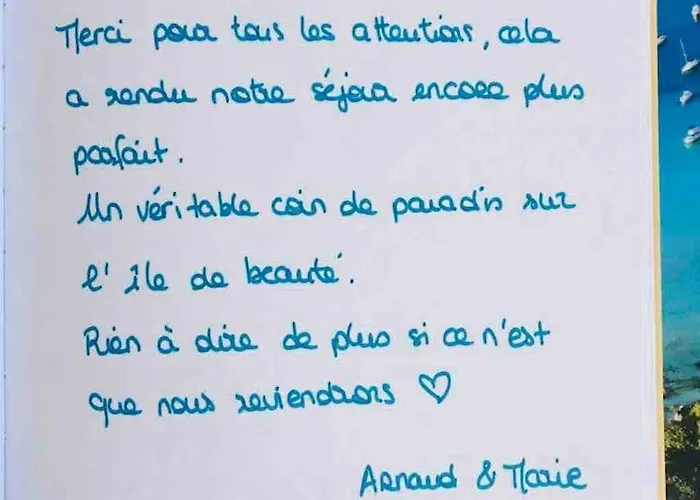 Merci pour tous les attentions, cela
a rendu notre séjour encore plus
parfait.
Un véritable coin de paradis sur
l' île de beauté.
Rien à dire de plus si ce n'est
que nous reviendrons ♡
Arnaud & Marie